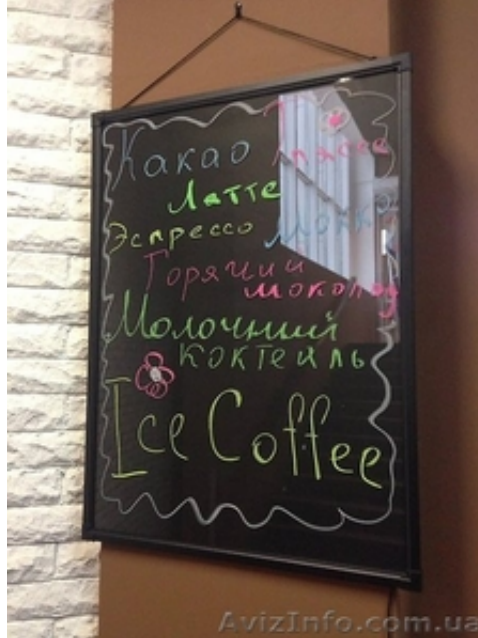 Какао Гляссе
Латте
Эспрессо Мокко
Горячий
шоколад
Молочний
коктейль
Ice Coffee
AvizInfo.com.ua